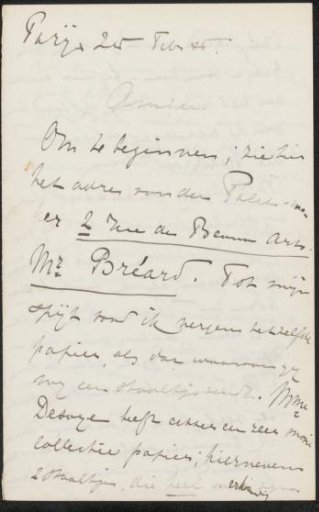 Parijs 25 Febr
Amice
Om te beginnen; zie hier
het adres van den
er 2 Rue des Beaux Arts.
Mr Bréard. Tot mijn
spijt vond ik nergens hetzelfde
papier, als dat waarvan gij
mij een staaltje zendt. Mme
Desoye heeft echter een zeer mooie
collectie papier; hiernevens
2 staaltjes, die heel